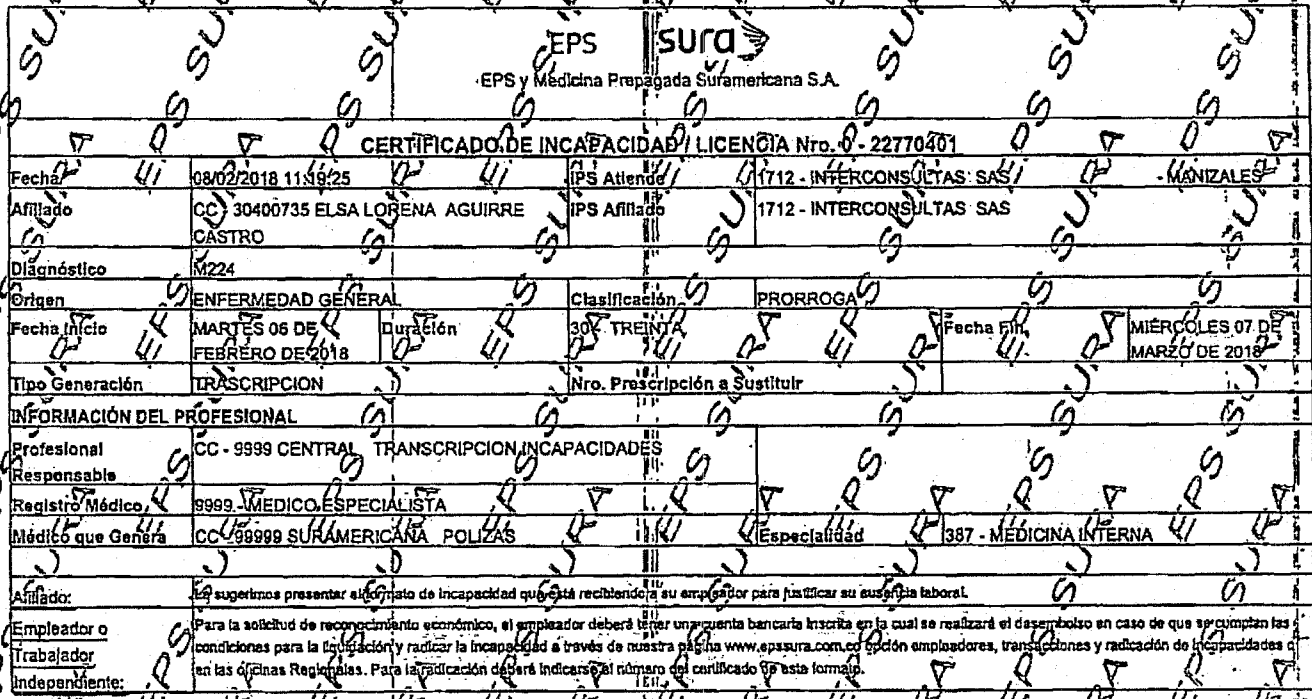 EPS sura
EPS y Medicina Prepagada Suramericana S.A.
CERTIFICADO DE INCAPACIDAD / LICENCIA Nro. 0 - 22770401
Fecha 08/02/2018 11:19:25 IPS Atiende 1712 - INTERCONSULTAS SAS - MANIZALES
Afiliado CC - 30400735 ELSA LORENA AGUIRRE IPS Afiliado 1712 - INTERCONSULTAS SAS
CASTRO
Diagnóstico M224
Origen ENFERMEDAD GENERAL Clasificación PRORROGA
Fecha Inicio MARTES 06 DE Duración 30 - TREINTA Fecha Fin MIÉRCOLES 07 DE
FEBRERO DE 2018 MARZO DE 2018
Tipo Generación TRASCRIPCION Nro. Prescripción a Sustituir
INFORMACIÓN DEL PROFESIONAL
Profesional CC - 9999 CENTRAL TRANSCRIPCION INCAPACIDADES
Responsable
Registro Médico 9999 - MEDICO ESPECIALISTA
Médico que Genera CC - 99999 SURAMERICANA POLIZAS Especialidad 387 - MEDICINA INTERNA
Afiliado: Le sugerimos presentar el formato de incapacidad que está recibiendo a su empleador para justificar su ausencia laboral.
Empleador o Para la solicitud de reconocimiento económico, el empleador deberá tener una cuenta bancaria inscrita en la cual se realizará el desembolso en caso de que se cumplan las
Trabajador condiciones para la liquidación y radicar la incapacidad a través de nuestra página www.epssura.com.co opción empleadores, transacciones y radicación de incapacidades o
Independiente: en las oficinas Regionales. Para la radicación deberá indicarse el número del certificado de este formato.